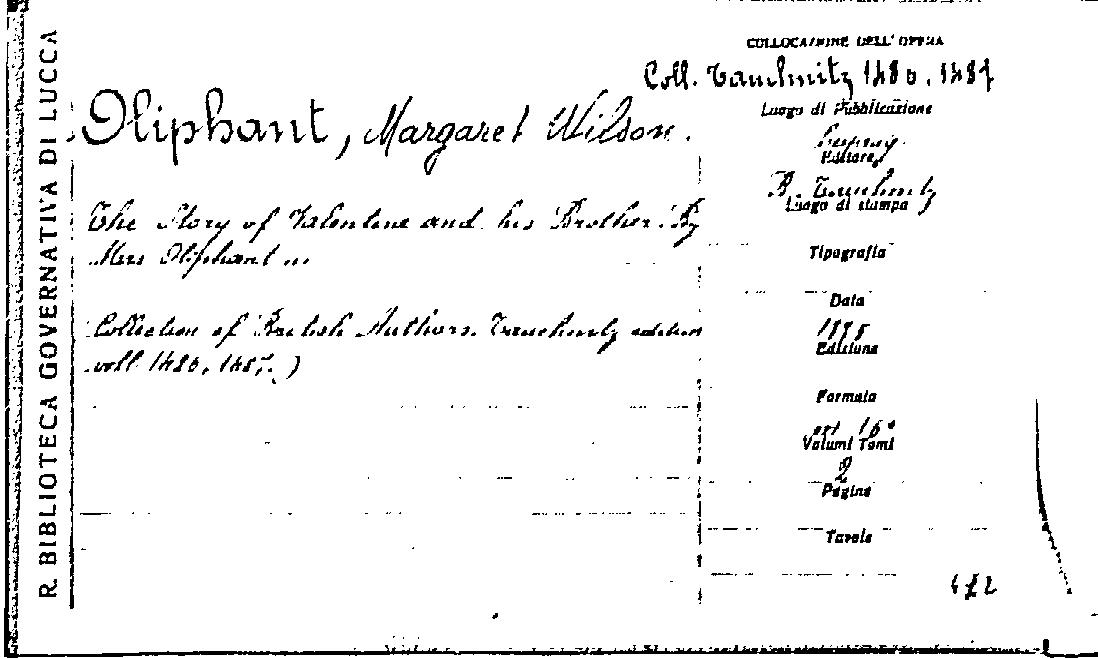 R. BIBLIOTECA GOVERNATIVA DI LUCCA
COLLOCAZIONE DELL'OPERA
Coll. Tauchnitz 1486, 1487
Oliphant, Margaret Wilson.
The Story of Valentine and his Brother. By
Mrs Oliphant ...
Collection of British Authors. Tauchnitz edition
voll 1486, 1487.)
Luogo di Pubblicazione
Leipzig
Editore
B. Tauchnitz
Luogo di stampa
Tipografia
Data
1875
Edizione
Formato
16°
Volumi Tomi
2
Pagine
Tavole